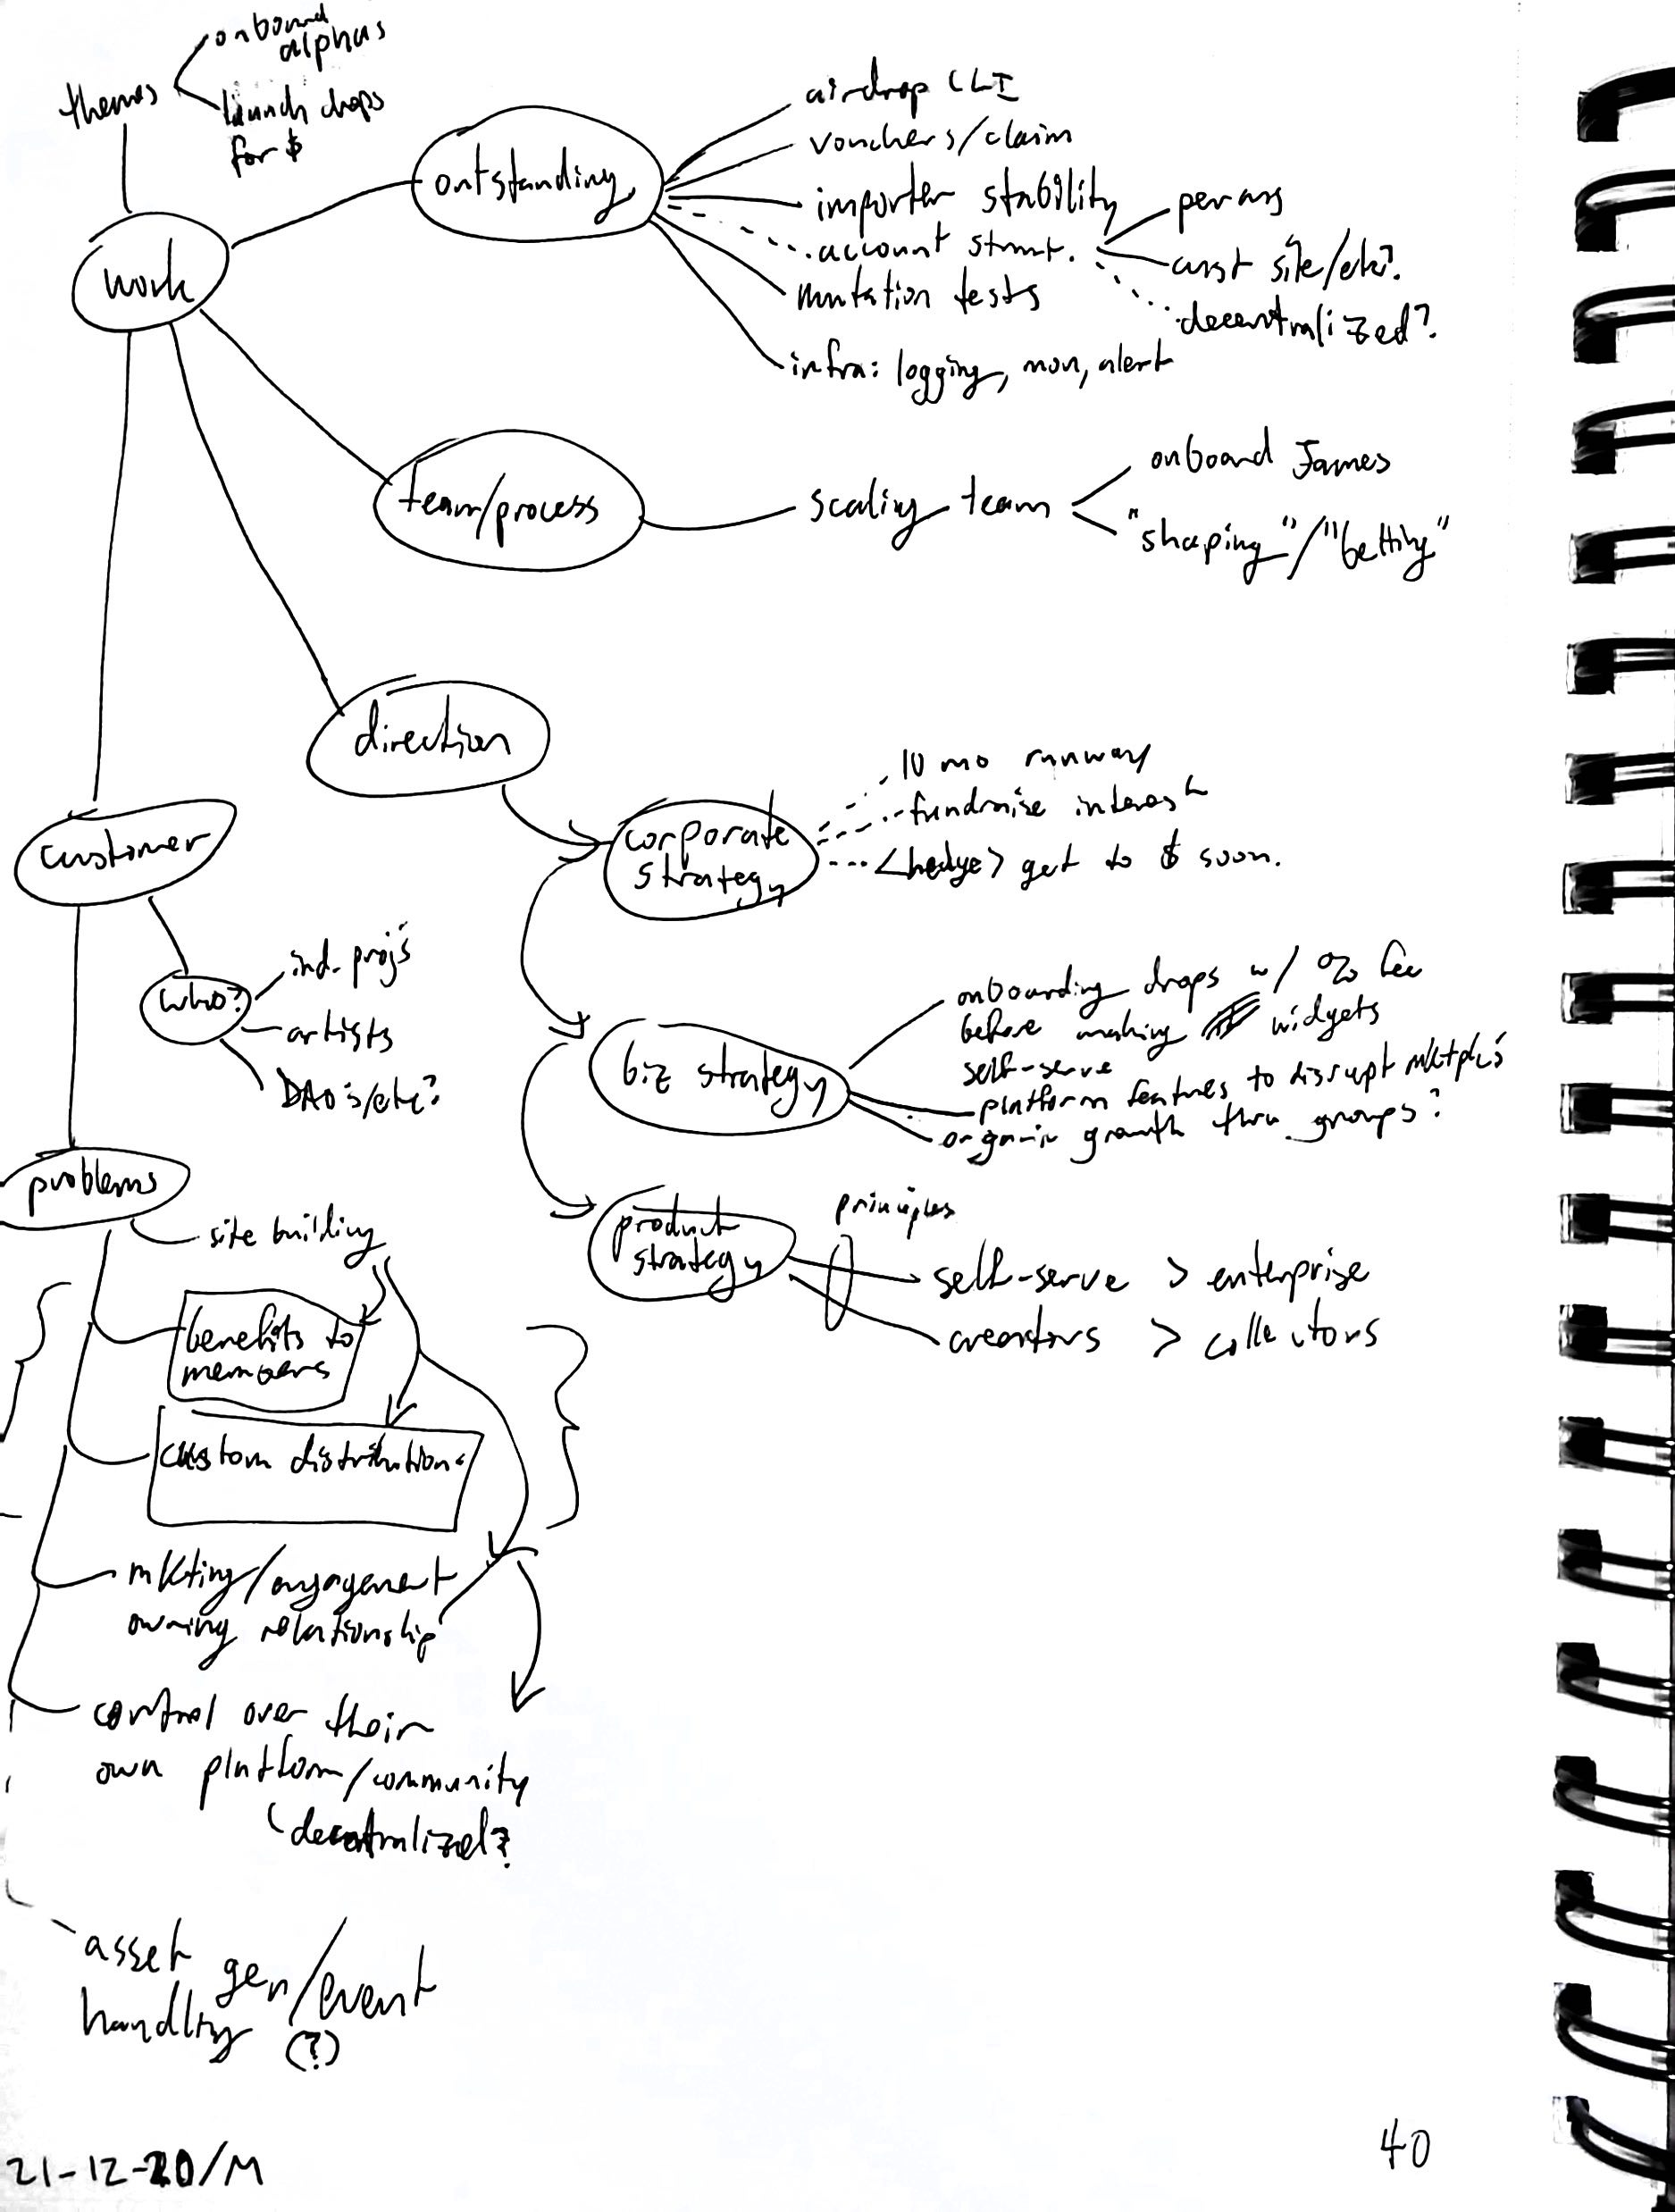 themes
onboard
alphas
launch drops
for $
work
outstanding
airdrop CLI
vouchers/claim
importer stability
account strmt.
perms
cust site/etc?
decentralized?
mutation tests
infra: logging, mon, alert
team/process
scaling team
onboard James
"shaping"/"betting"
direction
corporate
strategy
10 mo runway
fundraise interest
<hedge> get to $ soon.
biz strategy
onboarding drops w/ % fee
before making widgets
self-serve
platform features to disrupt mktplc's
organic growth thru groups?
product
strategy
principles
self-serve > enterprise
creators > collectors
customer
who?
ind. proj's
artists
DAO's/etc?
problems
site building
benefits to
members
custom distribution
mkting/engagement
owning relationship
control over their
own platform/community
decentralized?
asset gen/event
handling (?)
21-12-20/M
40